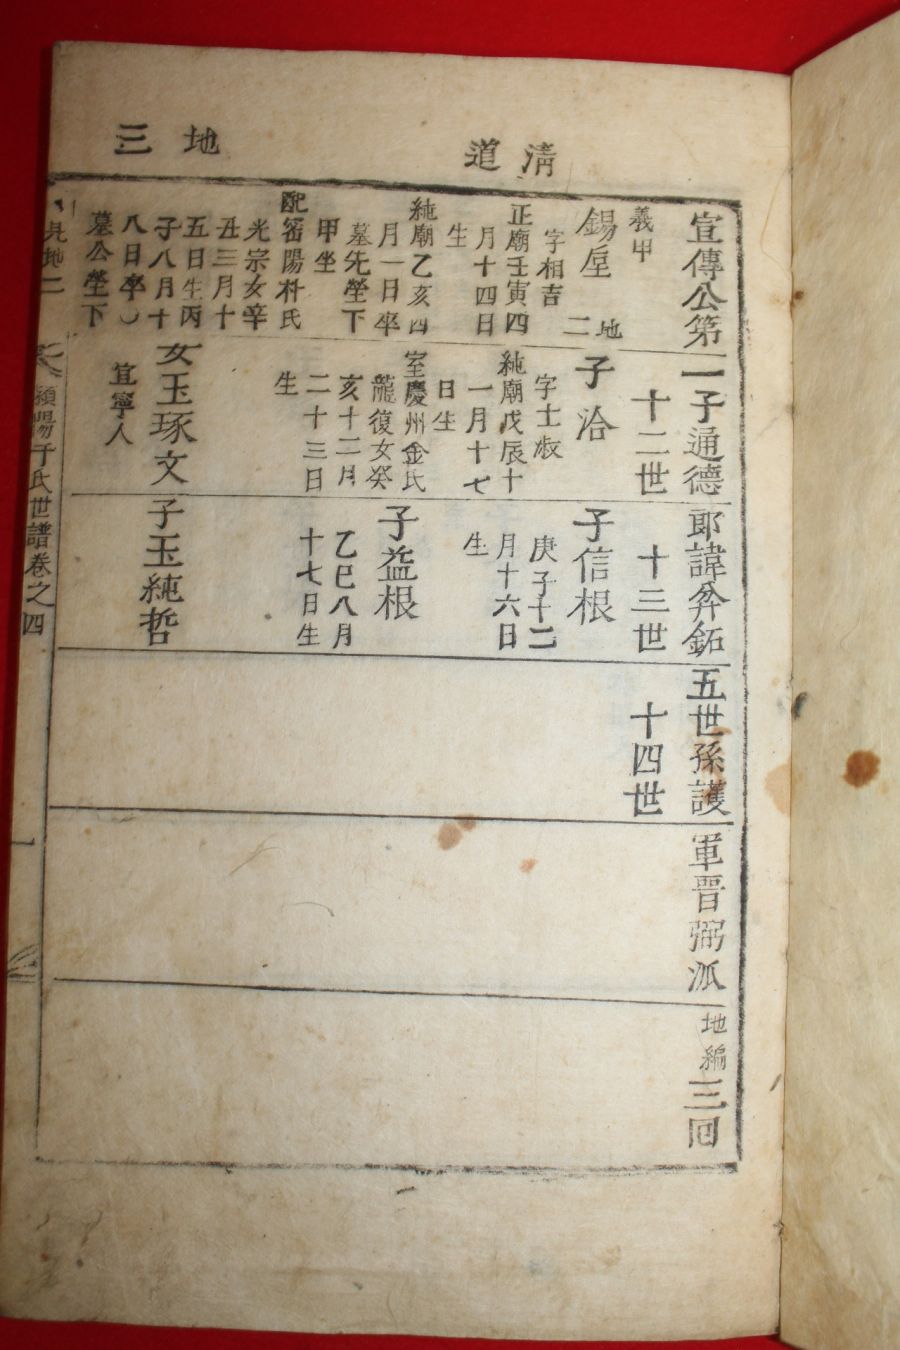 淸道
地三
宣傳公第一子通德郞諱弅鉐五世孫護軍晋弼派
地編三囘
十二世
十三世
十四世
義甲
錫垕
地二
字相吉
正廟壬寅四
月十四日
生
純廟乙亥四
月一日卒
墓先塋下
甲坐
配密陽朴氏
光宗女辛
丑三月十
五日生丙
子八月十
八日卒
墓公塋下
子洽
字士淑
純廟戊辰十
一月十七
日生
室慶州金氏
龍復女癸
亥十二月
二十三日
生
女玉琢文
宜寧人
子信根
庚子十二
月十六日
生
子益根
乙巳八月
十七日生
子玉純哲
見地二
潁陽千氏世譜卷之四
一